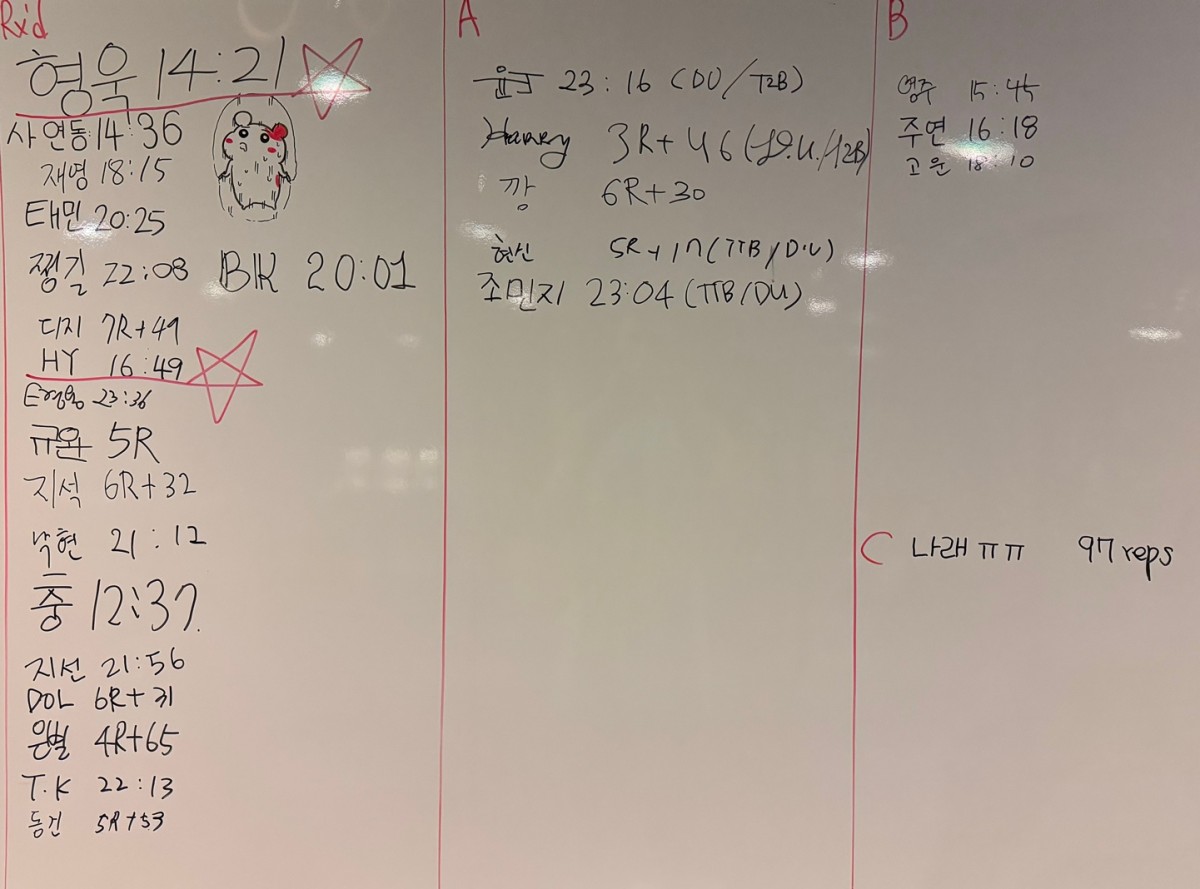 Rx'd
형욱 14:21
사연동 14:36
재영 18:15
태민 20:25
찡길 22:08 BK 20:01
디지 7R+49
HY 16:49
23:36
규완 5R
지석 6R+32
낙현 21:12
충 12:37
지선 21:56
DOL 6R+31
은별 4R+65
T.K 22:13
동건 5R+53
A
23:16 (DU/T2B)
Harry 3R+46 (D.U./T2B)
깡 6R+30
현신 5R+17 (TTB/D.U)
조민지 23:04 (TTB/DU)
B
영주 15:45
주연 16:18
고운 18:10
C 나래 ㅠㅠ 97 reps